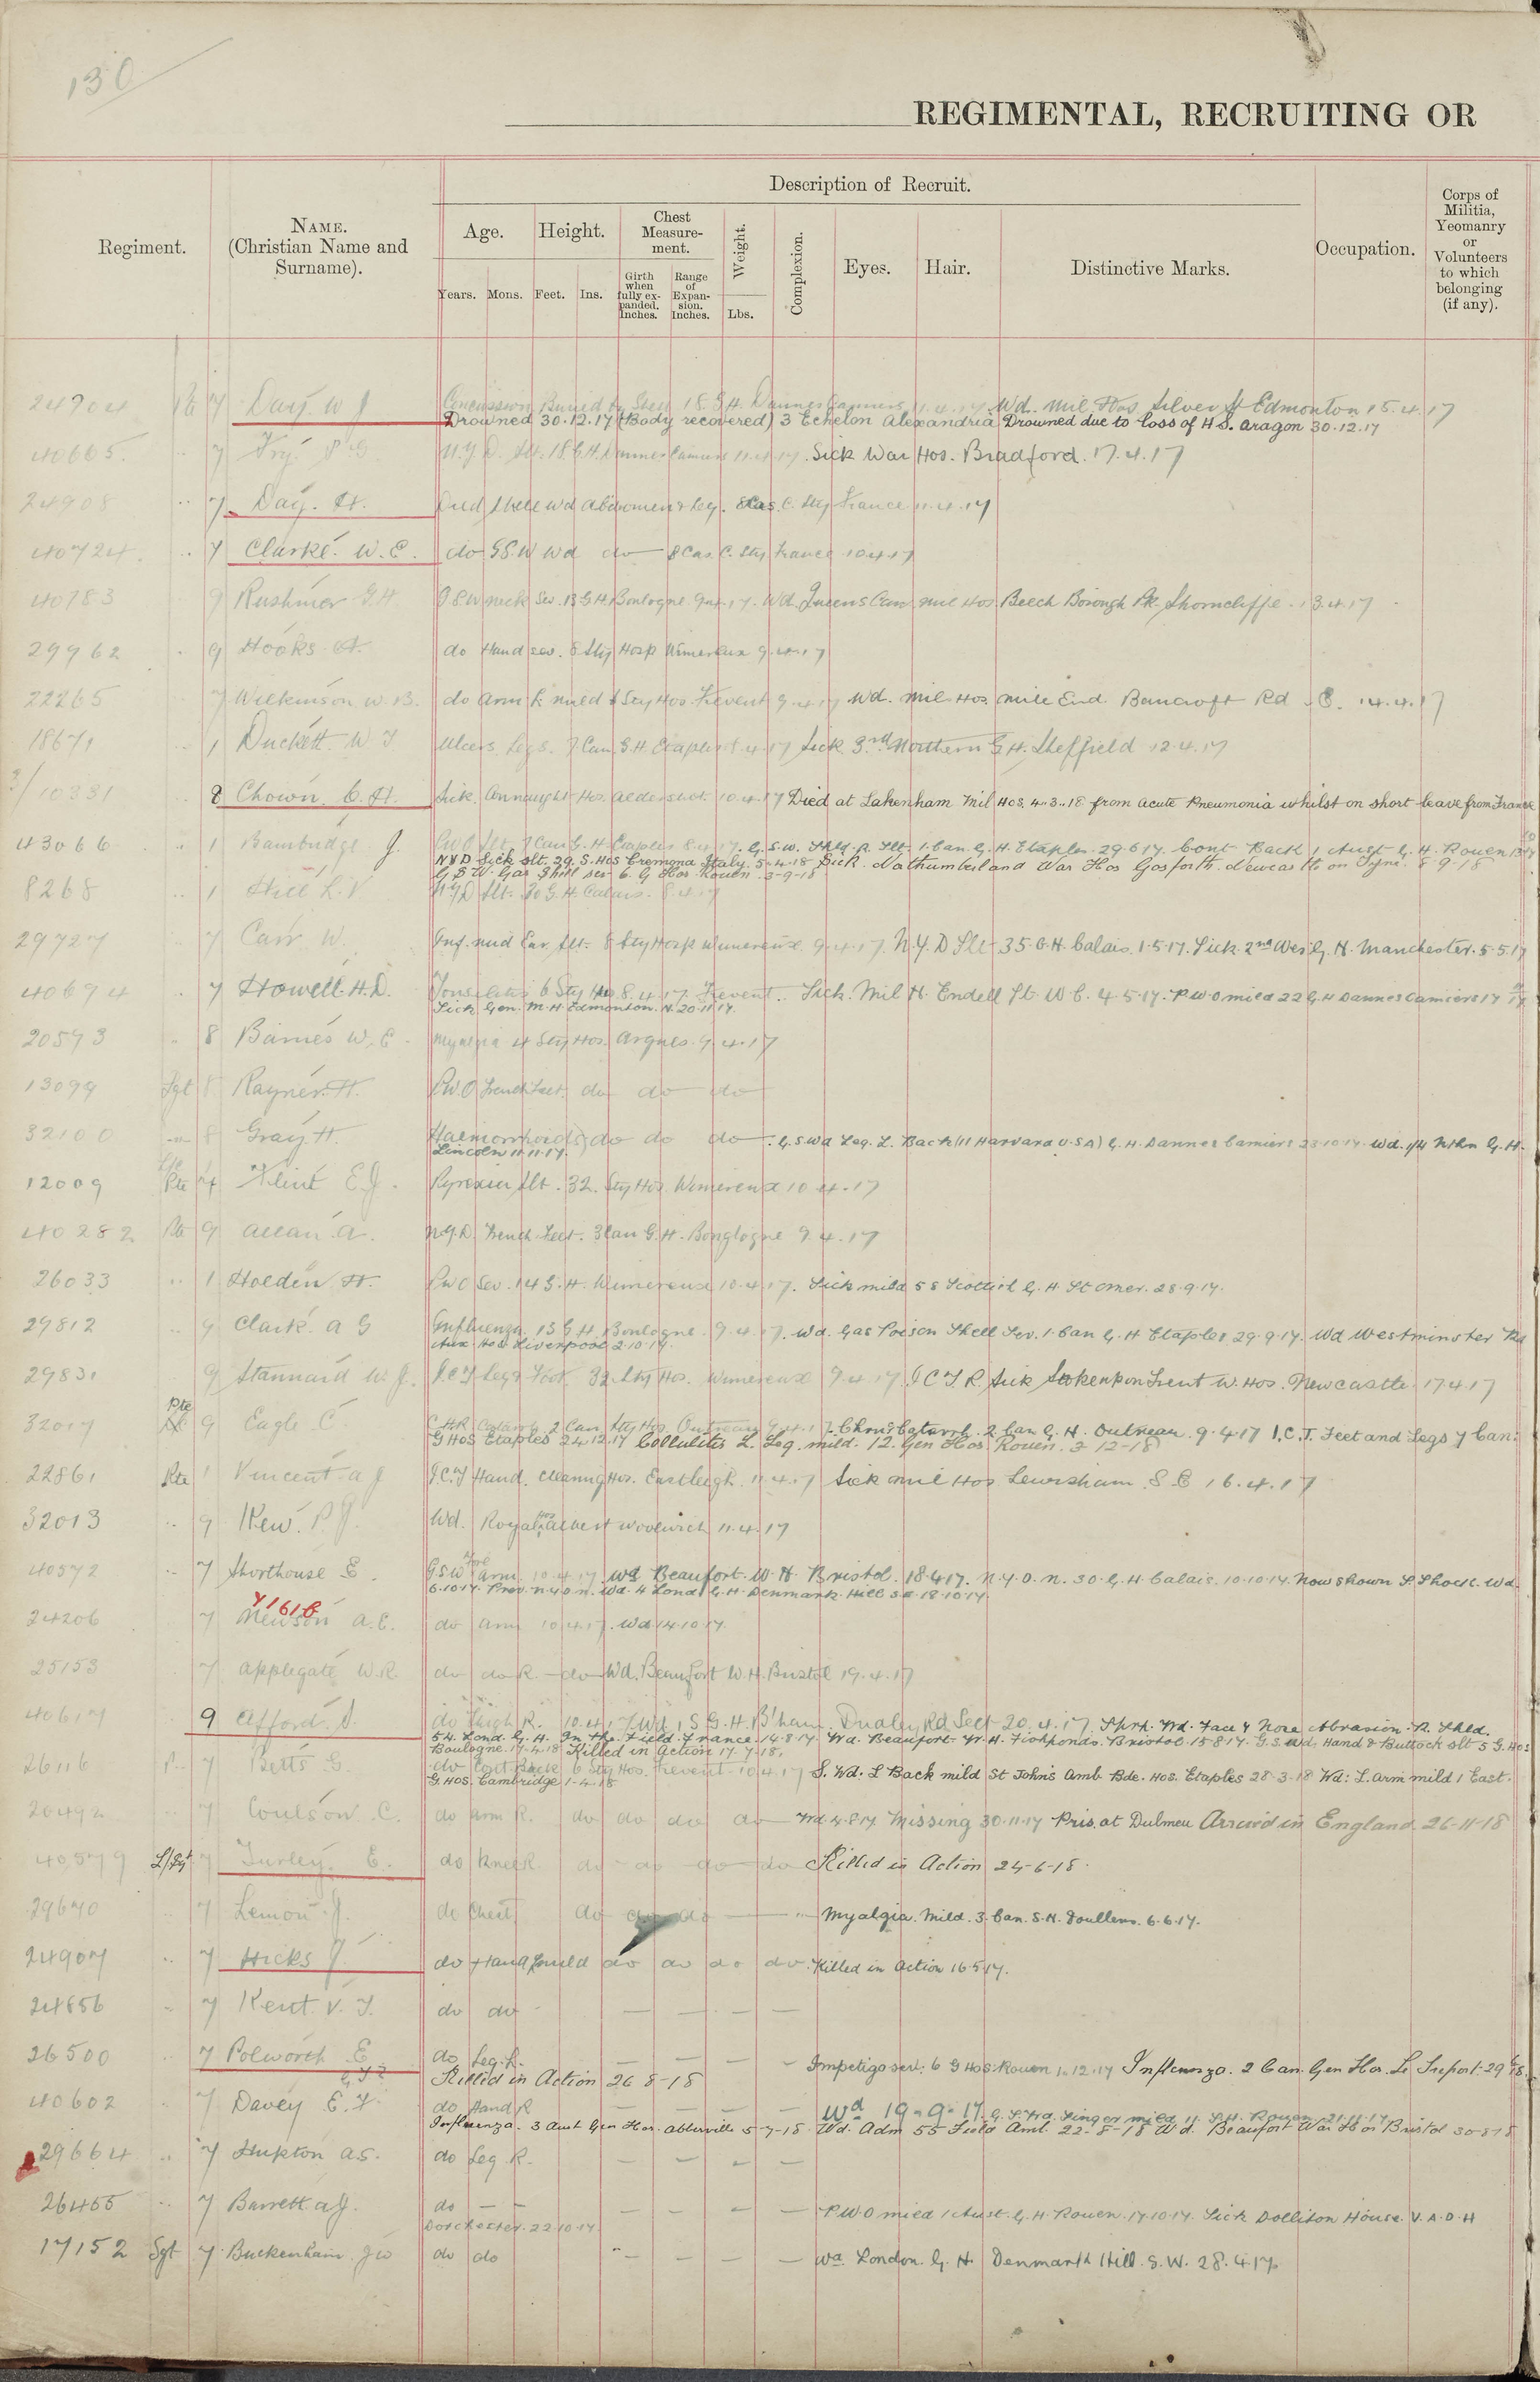 130
REGIMENTAL, RECRUITING OR
Description of Recruit.
Regiment.
NAME.
(Christian Name and
Surname).
Age.
Height.
Chest
Measure-
ment.
Weight.
Complexion.
Eyes.
Hair.
Distinctive Marks.
Occupation.
Corps of
Militia,
Yeomanry
or
Volunteers
to which
belonging
(if any).
Years.
Mons.
Feet.
Ins.
Girth
when
fully ex-
panded.
Inches.
Range
of
Expan-
sion.
Inches.
Lbs.
24904 Pte 7 Day. W J Concussion Buried by Shell 18. G H. Dannes Camiers 11.4.17. Wd. Mil Hos Silver St Edmonton 15.4.17
Drowned 30.12.17 (Body recovered) 3 Echelon Alexandria Drowned due to loss of H S. Aragon 30.12.17
40605 " 7 Fry. N.Y.D. Slt. 18 G H. Dannes Camiers 11.4.17. Sick War Hos. Bradford. 17.4.17
24908 " 7 Day. H. Died Shell Wd Abdomen & Leg. 8 Cas. C. Stg France 11.4.17
40724 " 7 Clarke. W. E. do G.S.W Wd do — 8 Cas. C. Stg France 10.4.17
40783 9 Rushmer G.H. G S W neck Sev. 13 G H. Boulogne 9.4.17. Wd. Queens Can Mil Hos Beech Borough Pk. Shorncliffe. 13.4.17
29962 9 Hooks. A. do Hand sev. 8 Stg Hosp Wimereux 9.4.17
22265 7 Wilkinson W. B. do Arm R mild 6 Stg Hos. Frevent 9.4.17 Wd. Mil Hos. Mile End. Bancroft Rd. E. 14.4.17
18671 1 Duckett. W J. Ulcers Legs. 7 Can G.H. Etaples 8.4.17 Sick 3rd Northern G H. Sheffield 12.4.17
3/10331 8 Chown. C. H. Sick Connaught Hos. Aldershot. 10.4.17 Died at Lakenham Mil Hos. 4.3.18 from Acute Pneumonia whilst on short leave from France
43066 1 Bambridge J. P W O Slt. 7 Can G. H Etaples 8.4.17. G.S.W. Shld. R. Slt 1. Can. G. H. Etaples. 29.6.17. Cont Back 1 Aust G. H. Rouen
NYD Sick Slt. 29. S. Hos Cremona Italy 5-4-18 Sick Nothumberland War Hos Gosforth. Newcastle on Tyne. 8-9-18
G S W. Gas Shell sev 6. G Hos Rouen 3-9-18
8268 " 1 Hill R. V N Y D Slt. 30 G. H. Calais. 8.4.17
29727 7 Carr. W. Inf. mid Ear Slt. 8 Stg Hosp Wimereux 9.4.17. N.Y.D Slt 35 G H. Calais. 1.5.17. Sick 2nd Wes G. H. Manchester. 5.5.17
40694 " 7 Howell. H. D. Tonsilitis 6 Stg Hos 8.4.17 Frevent. Sick. Mil H. Endell St. W C. 4.5.17. P W O mild 22 G H Dannes Camiers
Sick Gen. M. H Edmonton. N. 20.11.17.
20593 " 8 Barnes W. E. Myalgia 4 Stg Hos. Arques. 9.4.17
13099 Sgt 8 Rayner. H. P.W.O Trench Feet do do do
32100 8 Gray. H. Haemorrhoids do do do. G S Wd Leg. L. Back (11 Harvard U.S.A) G. H. Dannes Camiers 23.10.17. Wd. 4 Nthn G. H.
Lincoln 11.11.17.
12009 Pte 7 Flint E. J. Pyrexia Slt. 32. Stg Hos. Wimereux 10.4.17
40282 Pte 9 Allan. A. N.Y.D. Trench Feet. 3 Can G. H. Boulogne 9.4.17
26033 " 1 Holden H. P W O Sev. 14 G. H. Wimereux 10.4.17. Sick mild 58 Scottish G. H. St Omer. 28.9.17.
29812 " 9 Clark. A G Influenza. 13 G H Boulogne. 9.4.17. Wd. Gas Poison Shell Sev. 1. Can G. H Etaples 29.9.17. Wd Westminster Rd
Aux Hos Liverpool 2.10.17.
29831 9 Stannard W. J. I.C.T Leg & Foot. 32. Stg Hos. Wimereux 9.4.17 I C T R. Sick Stoke upon Trent W. Hos. Newcastle 17.4.17
32017 Pte 9 Eagle C. 2 Can Stg Hos. Outreau 9.4.17. Chron Catarrh. 2 Can G. H. Outreau. 9.4.17 I.C.T. Feet and Legs 7 Can.
G Hos Etaples 24.12.17 Collulitis L. Leg. mild. 12. Gen Hos Rouen. 3 12-18
22861 Pte 1 Vincent. A J I.C.T Hand. Clearing Hos. Eastleigh. 11.4.17 Sick Mil Hos Lewisham. S. E 16.4.17
32013 " 9 Kew. P. J. Wd. Royal Hos Albert Woolwich 11.4.17
40572 " 7 Shorthouse E. G.S.W Fore Arm 10.4.17 Wd Beaufort. W. H. Bristol. 18.4.17. N.Y.D.N. 30. G. H. Calais. 10.10.17. Now shown S. Shock. Wd.
6.10.17. Prov. N.Y.D.N. Wd. 4 Lond G. H. Denmark Hill S.E. 18.10.17
Y1616
24206 7 Newson A. E. do Arm 10.4.17. Wd 14.10.17.
25153 7 Applegate W. R. do do R do Wd. Beaufort W. H. Bristol 19.4.17
40617 9 Afford. S. do Thigh R. 10.4.17 Wd 1. S G. H. B'ham Dudley Rd Sect 20.4.17. Shrp. Wd. Face & Nose Abrasion. R. Shld.
54. Lond. G. H. In the Field France 14.8.17. Wd. Beaufort W. H. Fishponds. Bristol 15.8.17. G.S. Wd. Hand & Buttock slt 5 G. Hos
Boulogne. 17.4.18 Killed in Action 17.7.18.
26116 7 Betts. G. do Cont Back 6 Stg Hos. Frevent 10.4.17 S. Wd: L Back mild St John's Amb Bde. Hos. Etaples 28.3.18 Wd: L. Arm mild 1 East.
G. Hos. Cambridge 1-4-18
20492 7 Coulson. C. do Arm R. do do do do Wd. 4.8.17. Missing 30.11.17 Pris. at Dulmen Arrived in England 26-11-18
40579 L/Sgt 7 Turley. E. do Knee R. do do do do Killed in Action 24-6-18.
29670 7 Lemon. J. do Chest do do do — " Myalgia. Mild. 3. Can. S. H. Doullens. 6.6.17.
24907 " 7 Hicks J. do Hand mild do do do do. Killed in Action 16.5.17.
24856 " 7 Kent. V. J. do do — — — —
26500 7 Polworth E do Leg. L. — — — — Impetigo sev: 6 G Hos: Rouen 1.12.17 Influenza. 2 Can. Gen Hos. Le Treport.
Killed in Action 26-8-18
40602 7 Davey E. F. do Hand R — — — — Wd 19-9-17. G. S. Wd. Finger mild 11. S. H. Rouen
Influenza. 3 Aust Gen Hos. Abberville 5-7-18. Wd. Adm 55 Field Amb. 22-8-18 Wd. Beaufort War Hos Bristol 30-8-18
29664 " 7 Hupton A S. do Leg R. — — — —
26455 " 7 Barrett A J. do — — — — — — P W O mild 1 Aust. G. H. Rouen. 17.10.17. Sick Dolliton House. V. A. D. H
Dorchester. 22.10.17.
17152 Sgt 7 Buckenham. J W do do " — — — Wd. London. G. H. Denmark Hill. S. W. 28.4.17.